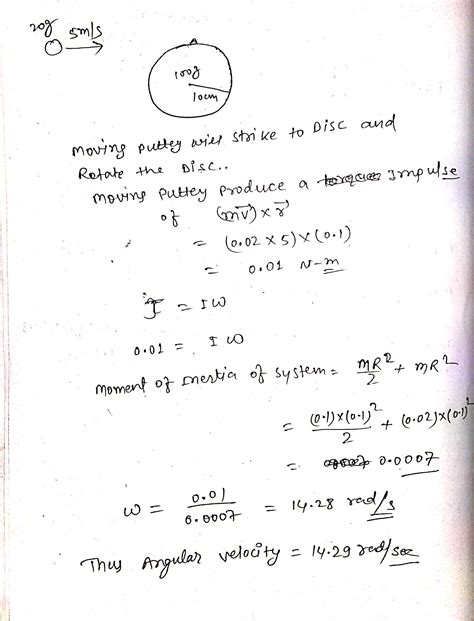 20g
5m/s
A
100g
10cm
Moving puttey will strike to Disc and
Rotate the Disc..
moving puttey produce a torque Impulse
of (mv⃗) × r⃗
= (0.02 × 5) × (0.1)
= 0.01 N-m
J = Iω
0.01 = Iω
Moment of Inertia of system = MR²/2 + mR²
= (0.1)×(0.1)²/2 + (0.02)×(0.1)²
= 0.0007
ω = 0.01/0.0007 = 14.28 rad/s
Thus Angular velocity = 14.29 rad/sec